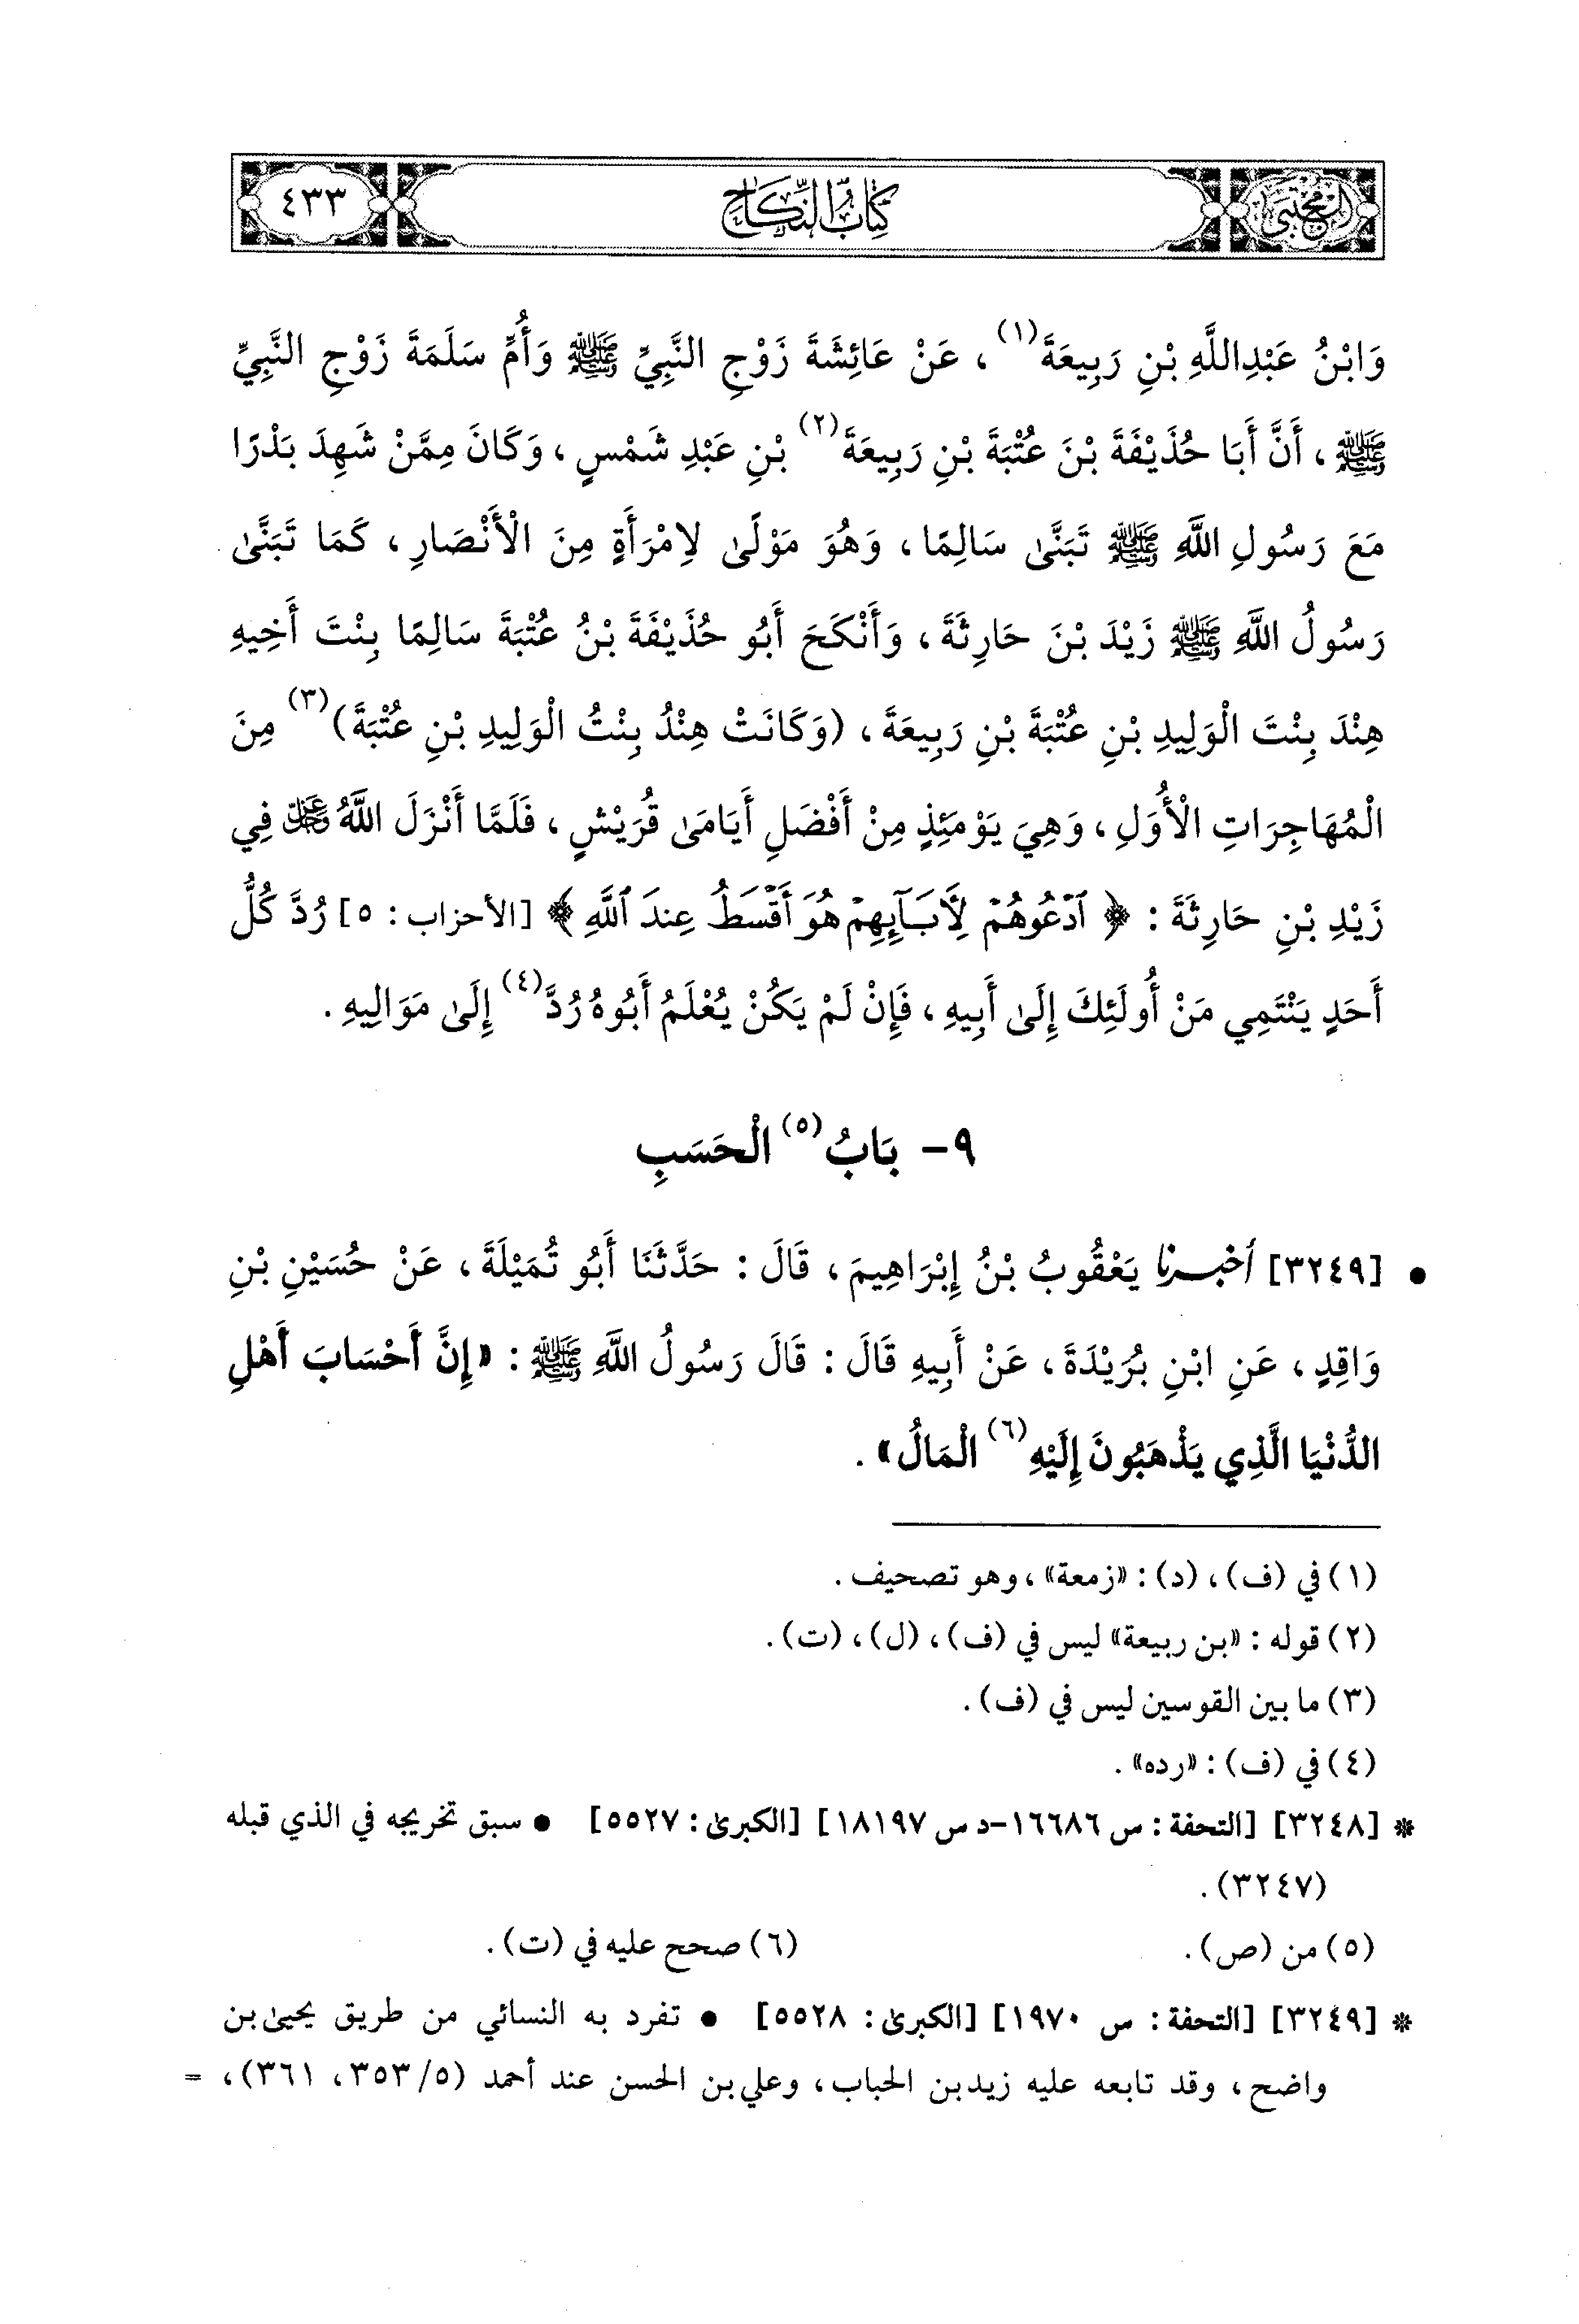 المجتبى
كتاب النكاح
٤٣٣
وَابْنُ عَبْدِاللَّهِ بْنِ رَبِيعَةَ(١)، عَنْ عَائِشَةَ زَوْجِ النَّبِيِّ ﷺ وَأُمِّ سَلَمَةَ زَوْجِ النَّبِيِّ
ﷺ، أَنَّ أَبَا حُذَيْفَةَ بْنَ عُتْبَةَ بْنِ رَبِيعَةَ(٢) بْنِ عَبْدِ شَمْسٍ، وَكَانَ مِمَّنْ شَهِدَ بَدْرًا
مَعَ رَسُولِ اللَّهِ ﷺ تَبَنَّىٰ سَالِمًا، وَهُوَ مَوْلًىٰ لِامْرَأَةٍ مِنَ الْأَنْصَارِ، كَمَا تَبَنَّىٰ
رَسُولُ اللَّهِ ﷺ زَيْدَ بْنَ حَارِثَةَ، وَأَنْكَحَ أَبُو حُذَيْفَةَ بْنُ عُتْبَةَ سَالِمًا بِنْتَ أَخِيهِ
هِنْدَ بِنْتَ الْوَلِيدِ بْنِ عُتْبَةَ بْنِ رَبِيعَةَ، (وَكَانَتْ هِنْدُ بِنْتُ الْوَلِيدِ بْنِ عُتْبَةَ)(٣) مِنَ
الْمُهَاجِرَاتِ الْأُوَلِ، وَهِيَ يَوْمَئِذٍ مِنْ أَفْضَلِ أَيَامَىٰ قُرَيْشٍ، فَلَمَّا أَنْزَلَ اللَّهُ عَزَّ وَجَلَّ فِي
زَيْدِ بْنِ حَارِثَةَ: ﴿ ٱدۡعُوهُمۡ لِأٓبَآئِهِمۡ هُوَ أَقۡسَطُ عِندَ ٱللَّهِ ﴾ [الأحزاب: ٥] رُدَّ كُلُّ
أَحَدٍ يَنْتَمِي مَنْ أُولَئِكَ إِلَىٰ أَبِيهِ، فَإِنْ لَمْ يَكُنْ يُعْلَمُ أَبُوهُ رُدَّ(٤) إِلَىٰ مَوَالِيهِ.
٩- بَابُ(٥) الْحَسَبِ
• [٣٢٤٩] أخبرنا يَعْقُوبُ بْنُ إِبْرَاهِيمَ، قَالَ: حَدَّثَنَا أَبُو تُمَيْلَةَ، عَنْ حُسَيْنِ بْنِ
وَاقِدٍ، عَنِ ابْنِ بُرَيْدَةَ، عَنْ أَبِيهِ قَالَ: قَالَ رَسُولُ اللَّهِ ﷺ: «إِنَّ أَحْسَابَ أَهْلِ
الدُّنْيَا الَّذِي يَذْهَبُونَ إِلَيْهِ(٦) الْمَالُ».
(١) في (ف)، (د): «زمعة»، وهو تصحيف.
(٢) قوله: «بن ربيعة» ليس في (ف)، (ل)، (ت).
(٣) ما بين القوسين ليس في (ف).
(٤) في (ف): «رده».
* [٣٢٤٨] [التحفة: س ١٦٦٨٦-د س ١٨١٩٧] [الكبرىٰ: ٥٥٢٧] • سبق تخريجه في الذي قبله
(٣٢٤٧).
(٥) من (ص). (٦) صحح عليه في (ت).
* [٣٢٤٩] [التحفة: س ١٩٧٠] [الكبرىٰ: ٥٥٢٨] • تفرد به النسائي من طريق يحيىٰ بن
واضح، وقد تابعه عليه زيدبن الحباب، وعلي بن الحسن عند أحمد (٥/ ٣٥٣، ٣٦١)، =